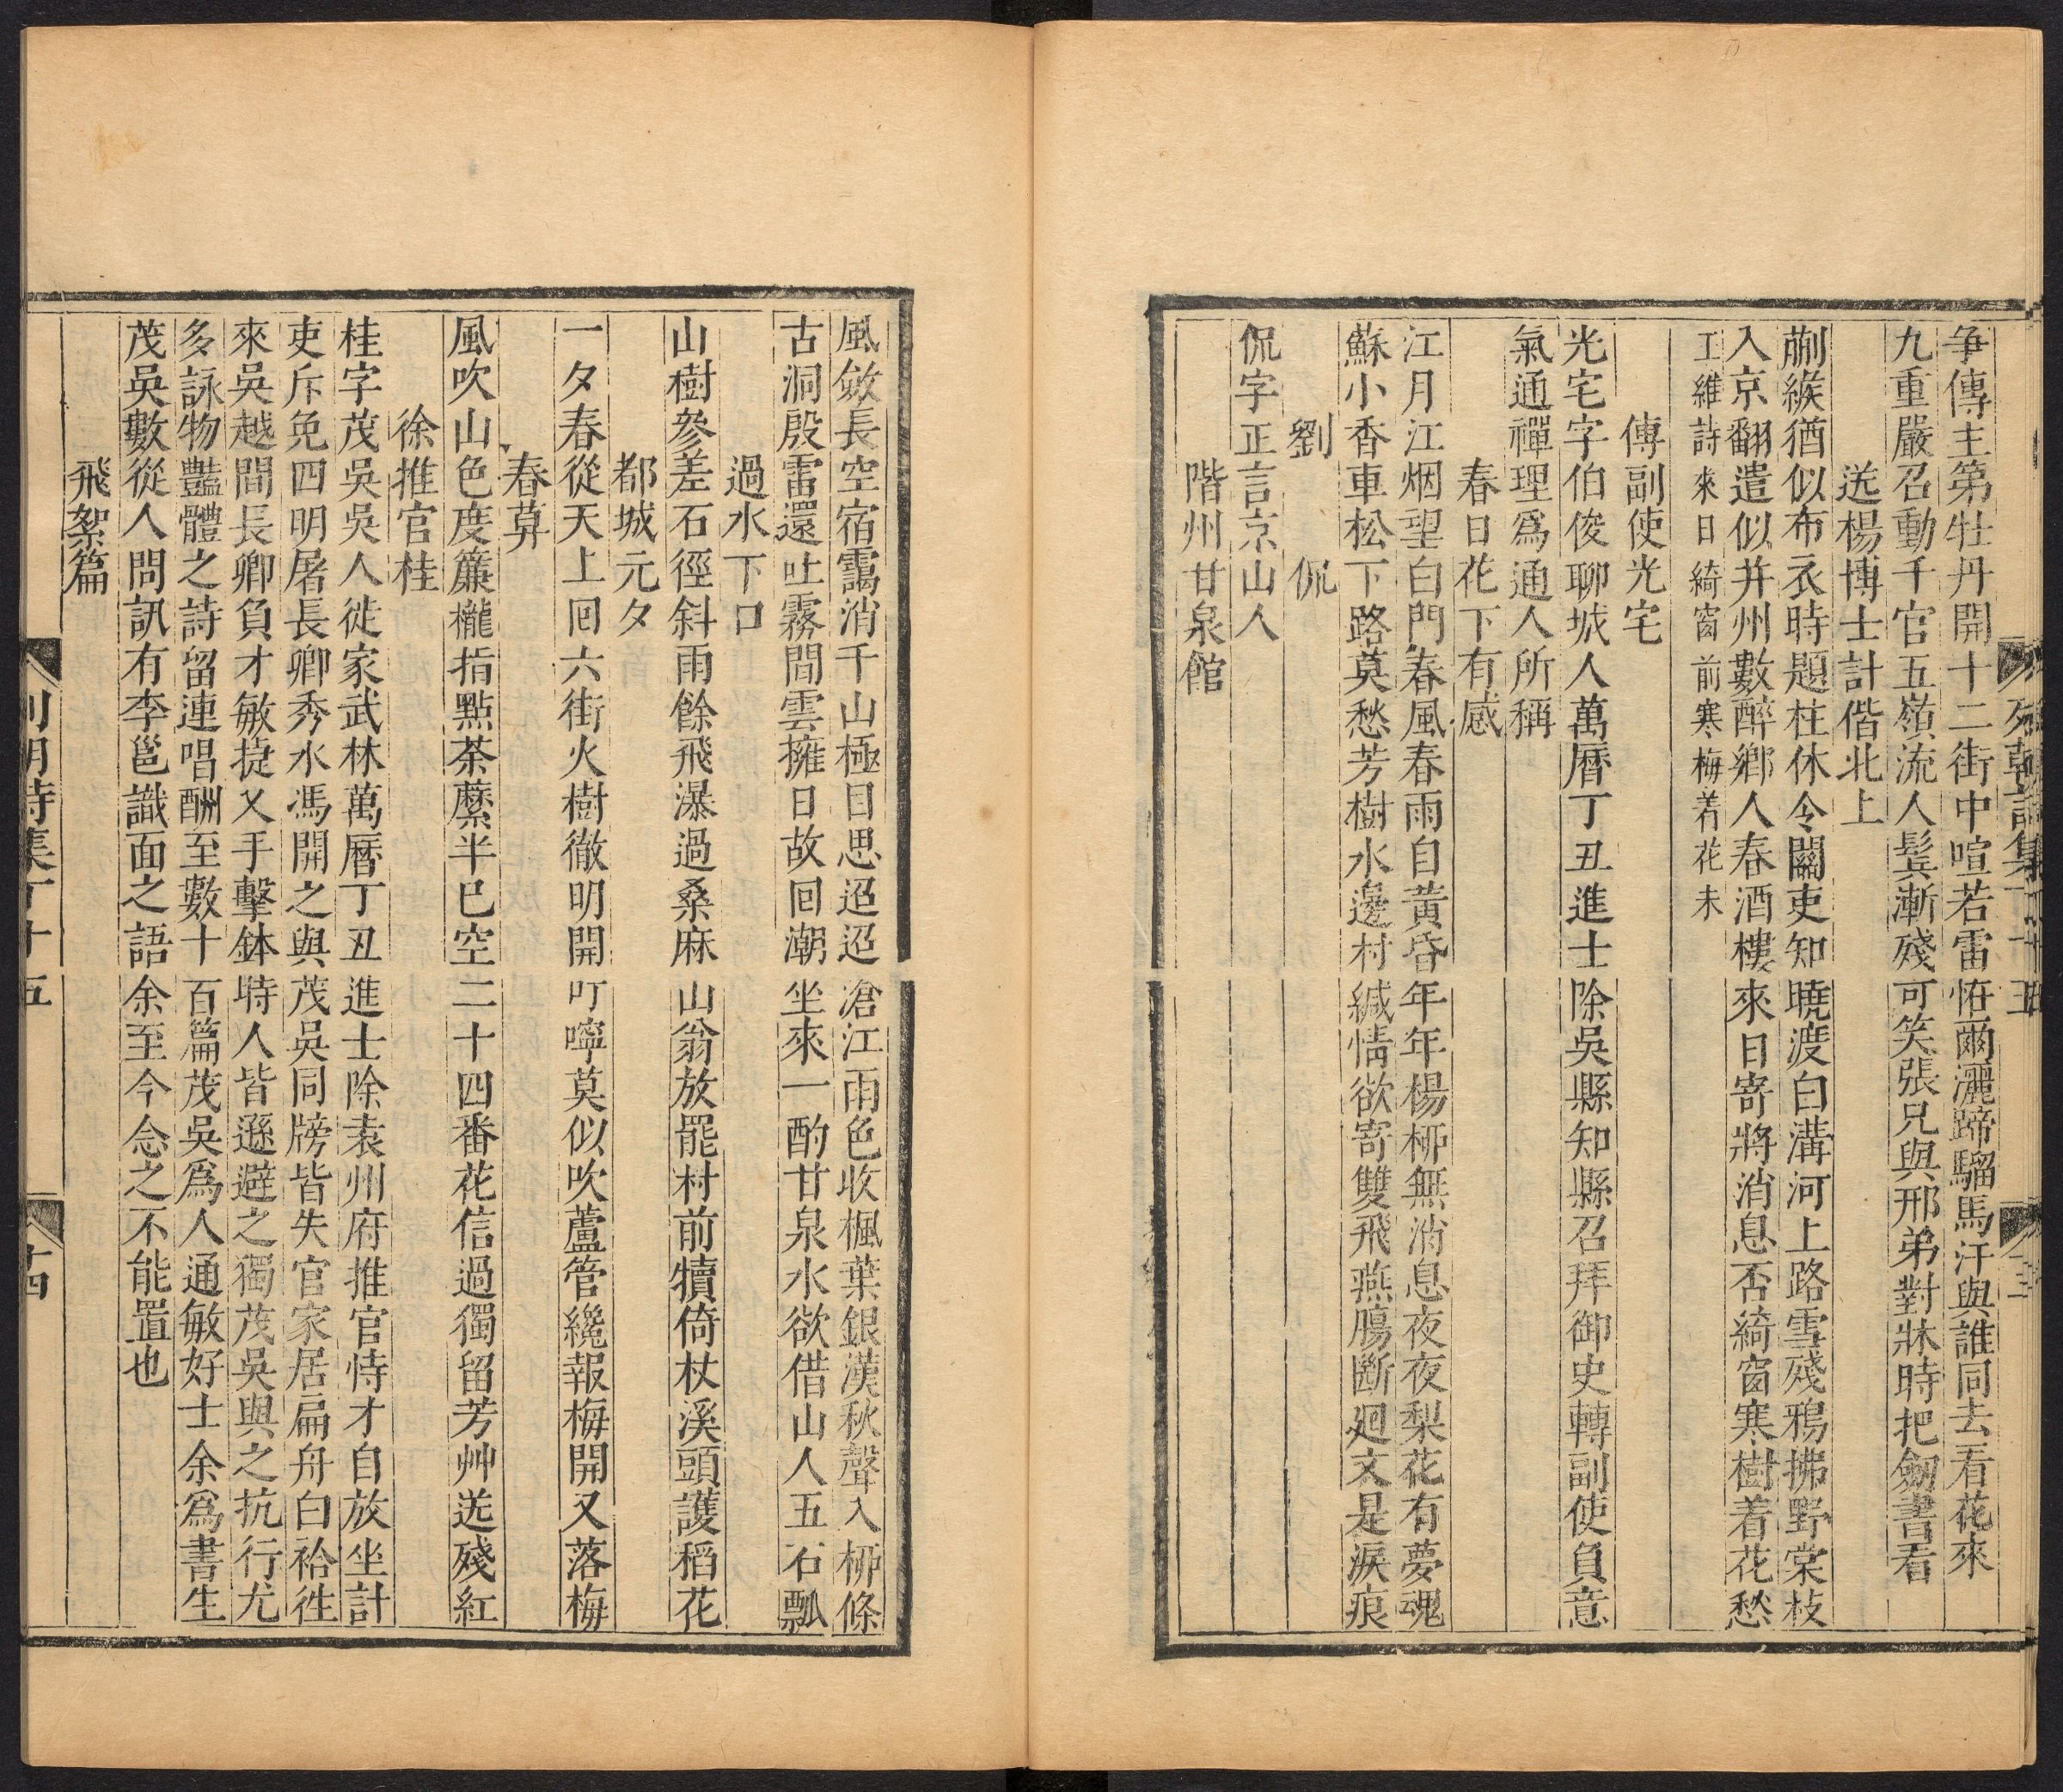 列朝詩集丁十五
十三
争傳主第牡丹開十二街中喧若雷恠爾灑蹄騮馬汗與誰同去看花來
九重嚴召動千官五嶺流人鬂漸殘可笑張兄與邢弟對牀時把劒書看
送楊博士計偕北上
蒯緱猶似布衣時題柱休令關吏知曉渡白溝河上路雪殘鴉拂野棠枝
入京翻遣似并州數醉鄉人春酒樓來日寄將消息否綺窗寒樹着花愁
王維詩來日綺窗前寒梅着花未
傅副使光宅
光宅字伯俊聊城人萬曆丁丑進士除吳縣知縣召拜御史轉副使負意
氣通禪理爲通人所稱
春日花下有感
江月江烟望白門春風春雨自黄昏年年楊桺無消息夜夜梨花有夢魂
蘇小香車松下路莫愁芳樹水邊村緘情欲寄雙飛燕膓斷廻文是淚痕
劉侃
侃字正言京山人
階州甘泉館
風斂長空宿靄消千山極目思迢迢滄江雨色收楓葉銀漢秋聲入桺條
古洞殷雷還吐霧間雲擁日故回潮坐來一酌甘泉水欲借山人五石瓢
過水下口
山樹參差石徑斜雨餘飛瀑過桑麻山翁放罷村前犢倚杖溪頭護稻花
都城元夕
一夕春從天上回六街火樹徹明開叮嚀莫似吹蘆管纔報梅開又落梅
春莫
風吹山色度簾櫳指點茶蘪半已空二十四番花信過獨留芳艸送殘紅
徐推官桂
桂字茂吳吳人徙家武林萬曆丁丑進士除袁州府推官恃才自放坐計
吏斥免四明屠長卿秀水馮開之與茂吳同牓皆失官家居扁舟白袷徃
來吳越間長卿負才敏捷叉手擊鉢時人皆遜避之獨茂吳與之抗行尤
多詠物豔體之詩留連唱酬至數十百篇茂吳爲人通敏好士余爲書生
茂吳數從人問訊有李邕識面之語余至今念之不能置也
飛絮篇
列朝詩集丁十五
十四